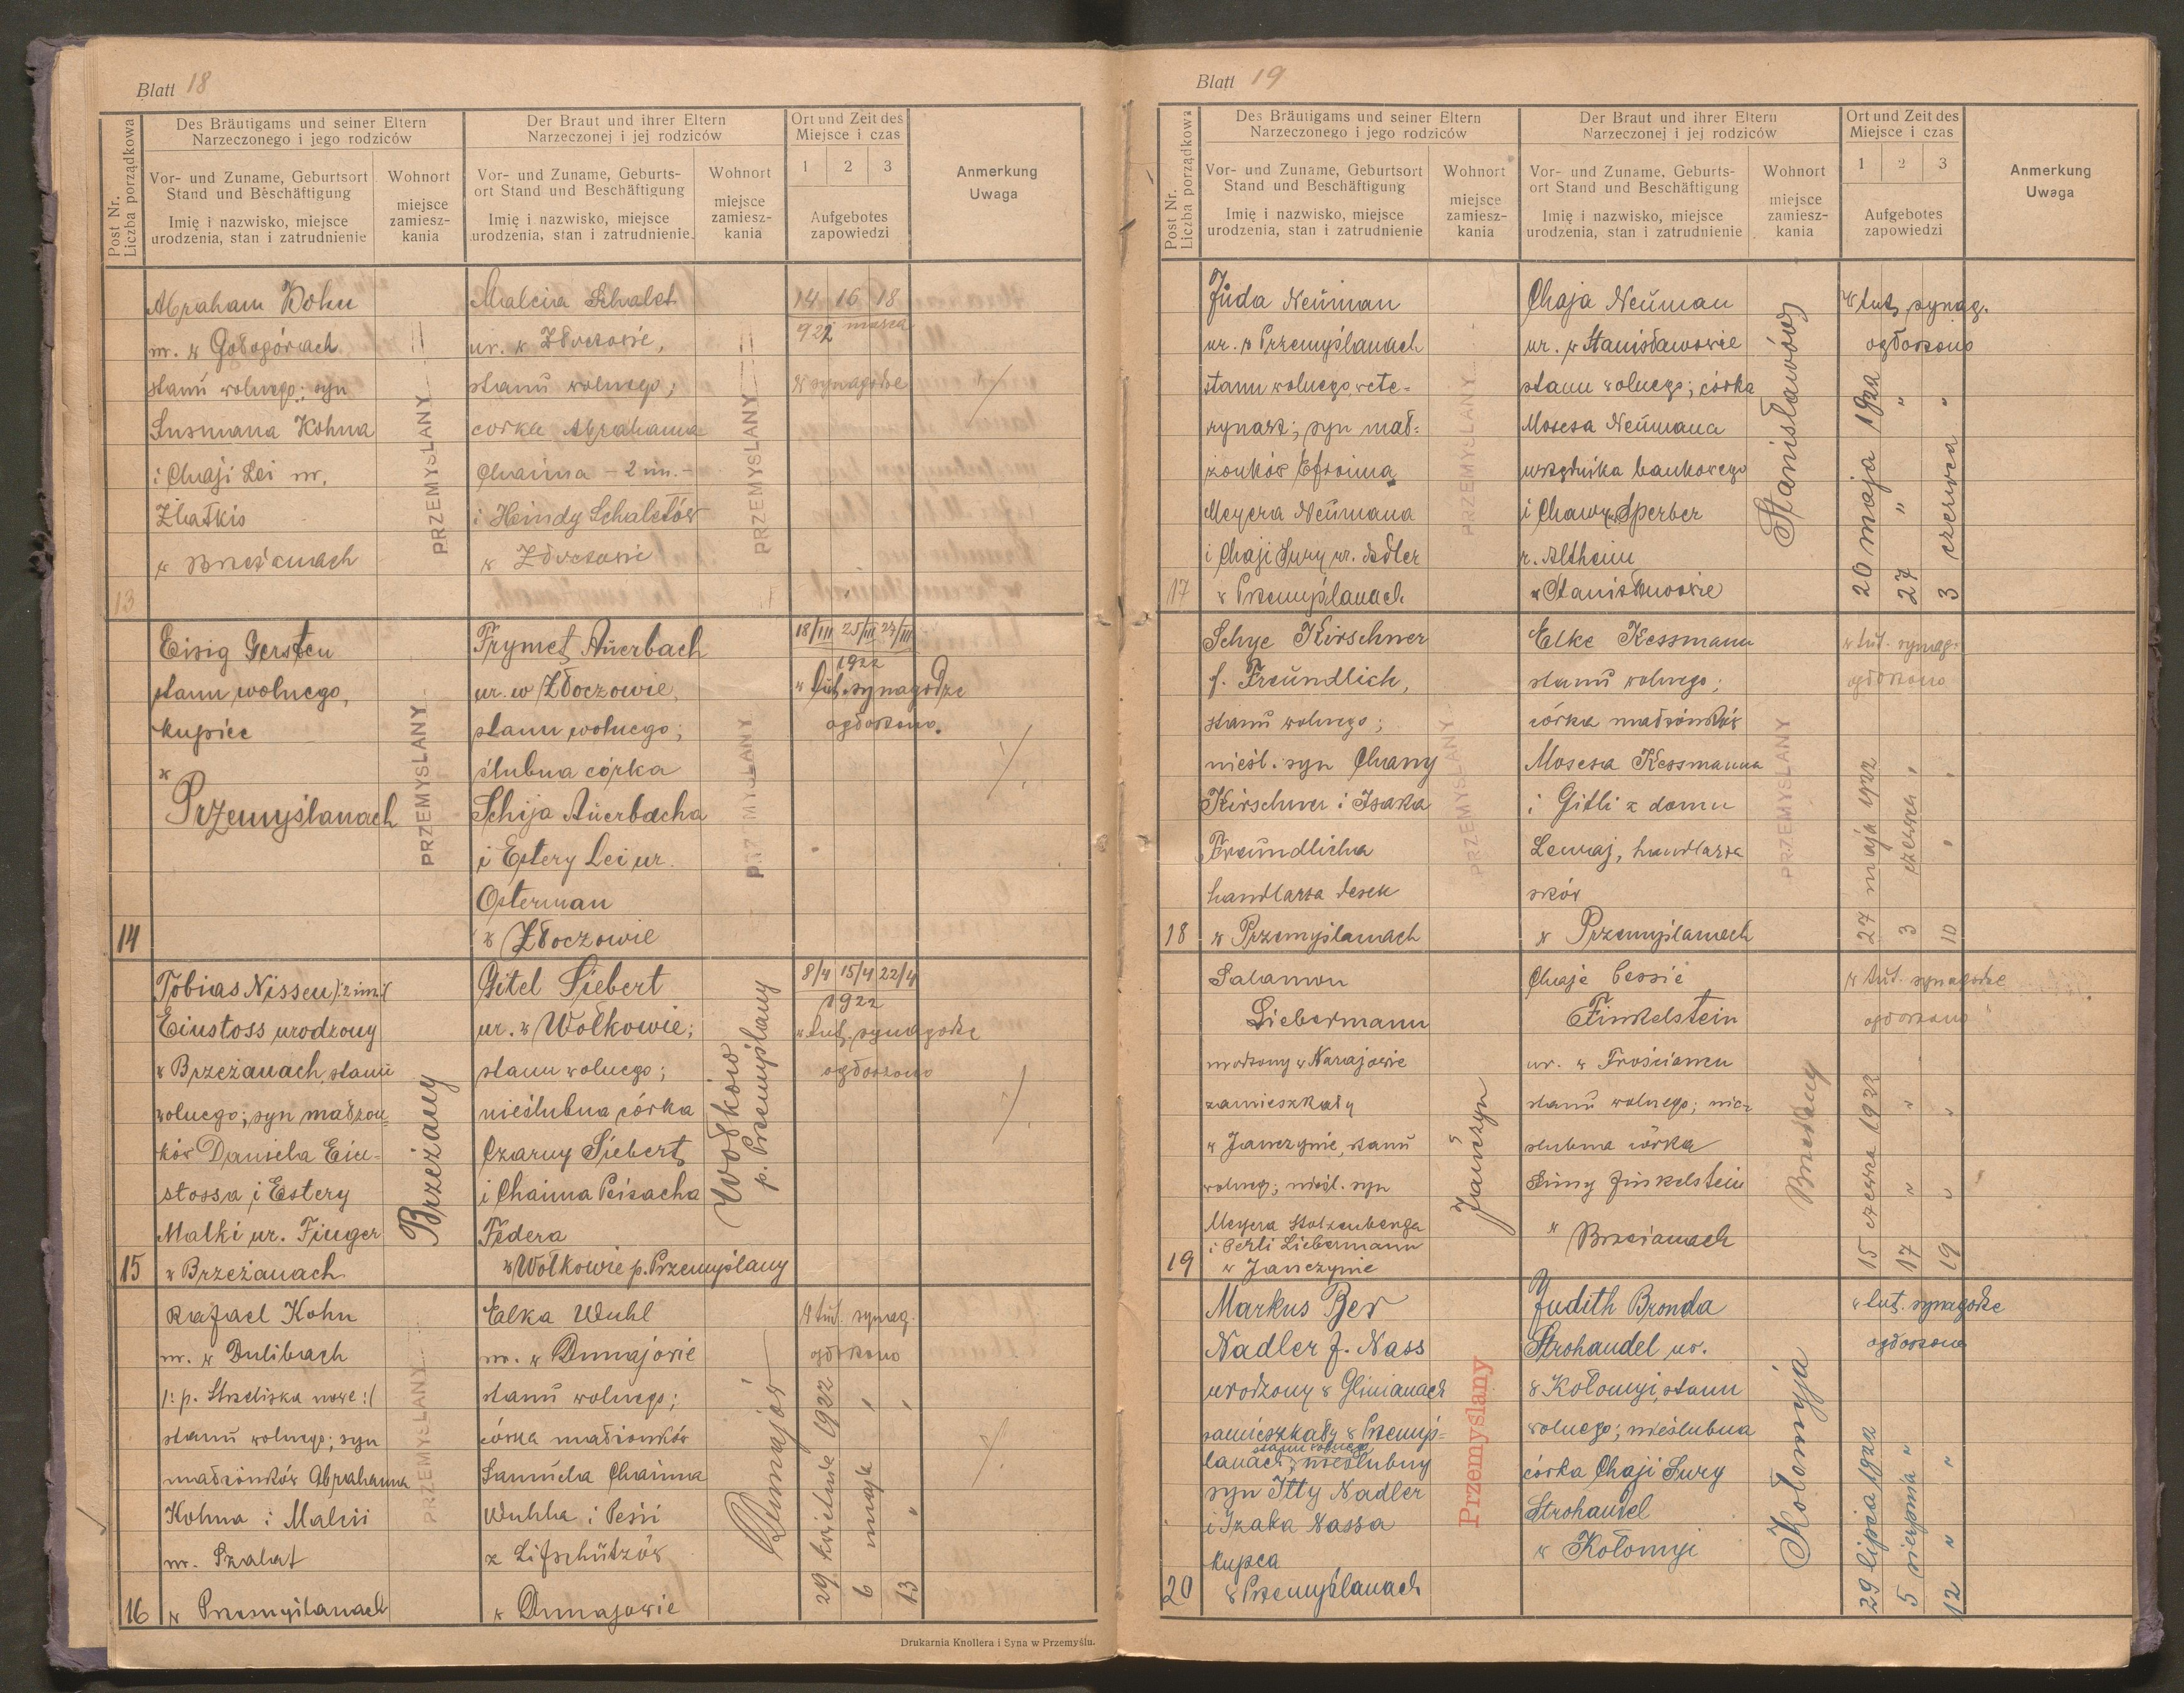 Blatt 18
Post Nr.
Liczba porządkowa
Des Bräutigams und seiner Eltern
Narzeczonego i jego rodziców
Der Braut und ihrer Eltern
Narzeczonej i jej rodziców
Ort und Zeit des
Miejsce i czas
Anmerkung
Uwaga
Vor- und Zuname, Geburtsort
Stand und Beschäftigung
Imię i nazwisko, miejsce
urodzenia, stan i zatrudnienie
Wohnort
miejsce
zamiesz-
kania
Vor- und Zuname, Geburts-
ort Stand und Beschäftigung
Imię i nazwisko, miejsce
urodzenia, stan i zatrudnienie
Wohnort
miejsce
zamiesz-
kania
1 2 3
Aufgebotes
zapowiedzi
13
Abraham Kohn
ur. w Gołogórach
stanu wolnego; syn
Susmana Kohna
i Chaji Lei ur.
w Brzeżanach
PRZEMYSLANY
Malcia Schalet
ur. w Złoczowie,
stanu wolnego;
córka Abrahama
Chaima - 2 im. -
i Heindy Schaletów
w Złoczowie
PRZEMYSLANY
14 16 18
922 marca
w synagodze
14
Eisig Gersten
stanu wolnego,
kupiec
w
Przemyślanach
PRZEMYSLANY
Frymet Auerbach
ur. w Złoczowie,
stanu wolnego;
ślubna córka
Schija Auerbacha
i Estery Lei ur.
Osterman
w Złoczowie
PRZEMYSLANY
18/III 25/III 27/III
1922
w tut. synagodze
ogłoszono.
15
Tobias Nissen /:2 im:/
Einstoss urodzony
w Brzeżanach, stanu
wolnego; syn małżon=
ków Daniela Ein=
stossa i Estery
Malki ur. Finger
w Brzeżanach
Brzeżany
Gitel Siebert
ur. w Wołkowie;
stanu wolnego;
nieślubna córka
Czarny Siebert
i Chaima Peisacha
Federa
w Wołkowie p. Przemyślany
Wołków
p. Przemyślany
8/4 15/4 22/4
1922
w tut. synagodze
ogłoszono
16
Rafael Kohn
ur. w Dulibach
/: p. Strzeliska nowe :/
stanu wolnego; syn
małżonków Abrahama
Kohna i Malcii
ur. Szalat
w Przemyślanach
PRZEMYSLANY
Elka Wuhl
ur. w Dunajowie
stanu wolnego;
córka małżonków
Samuela Chaima
Wuhla i Pesii
z Lifschützów
w Dunajowie
Dunajów
w tut. synag.
ogłoszono
29 kwietnia 1922
6 maja "
13 " "
Drukarnia Knollera i Syna w Przemyślu.
Blatt 19
Post Nr.
Liczba porządkowa
Des Bräutigams und seiner Eltern
Narzeczonego i jego rodziców
Der Braut und ihrer Eltern
Narzeczonej i jej rodziców
Ort und Zeit des
Miejsce i czas
Anmerkung
Uwaga
Vor- und Zuname, Geburtsort
Stand und Beschäftigung
Imię i nazwisko, miejsce
urodzenia, stan i zatrudnienie
Wohnort
miejsce
zamiesz-
kania
Vor- und Zuname, Geburts-
ort Stand und Beschäftigung
Imię i nazwisko, miejsce
urodzenia, stan i zatrudnienie
Wohnort
miejsce
zamiesz-
kania
1 2 3
Aufgebotes
zapowiedzi
17
Juda Neuman
ur. w Przemyślanach
stanu wolnego, wete=
rynarz; syn mał=
żonków Efroima
Meyera Neumana
i Chaji Sury ur. Adler
w Przemyślanach
PRZEMYSLANY
Chaja Neuman
ur. w Stanisławowie
stanu wolnego; córka
Mosesa Neumana
urzędnika bankowego
i Chawy Sperber
r. Altheim
w Stanisławowie
Stanisławów
w tut. synag.
ogłoszono
20 maja 1922
27 " "
3 czerwca "
18
Schye Kirschner
f. Freundlich,
stanu wolnego;
nieśl. syn Chany
Kirschner i Isaka
Freundlicha
handlarza desek
w Przemyślanach
PRZEMYSLANY
Elke Kessmann
stanu wolnego;
córka małżonków
Mosesa Kessmanna
i Gitli z domu
handlarza
skór
w Przemyślanach
PRZEMYSLANY
w tut. synag.
ogłoszono
27 maja 1922
3 czerwca "
10 " "
19
Salamon
Liebermann
urodzony w Narajowie
zamieszkały
w Janczynie, stanu
wolnego; nieśl. syn
Meyera Stolzenberga
i Perli Liebermann
w Janczynie
Janczyn
Chaje Cessie
Finkelstein
ur. w Trościańcu
stanu wolnego; nie=
ślubna córka
Simy Finkelstein
w Brzeżanach
Brzeżany
w tut. synagodze
ogłoszono
15 czerwca 1922
17 " "
19 " "
20
Markus Ber
Nadler f. Nass
urodzony w Glinianach
zamieszkały w Przemyś=
stanu wolnego
lanach; nieślubny
syn Itty Nadler
i Izaka Nassa
kupca
w Przemyślanach
Przemyślany
Judith Bronda
Strohandel ur.
w Kołomyi, stanu
wolnego; nieślubna
córka Chaji Sury
Strohandel
w Kołomyi
Kołomyja
w tut. synagodze
ogłoszono
29 lipca 1922
5 sierpnia "
12 " "